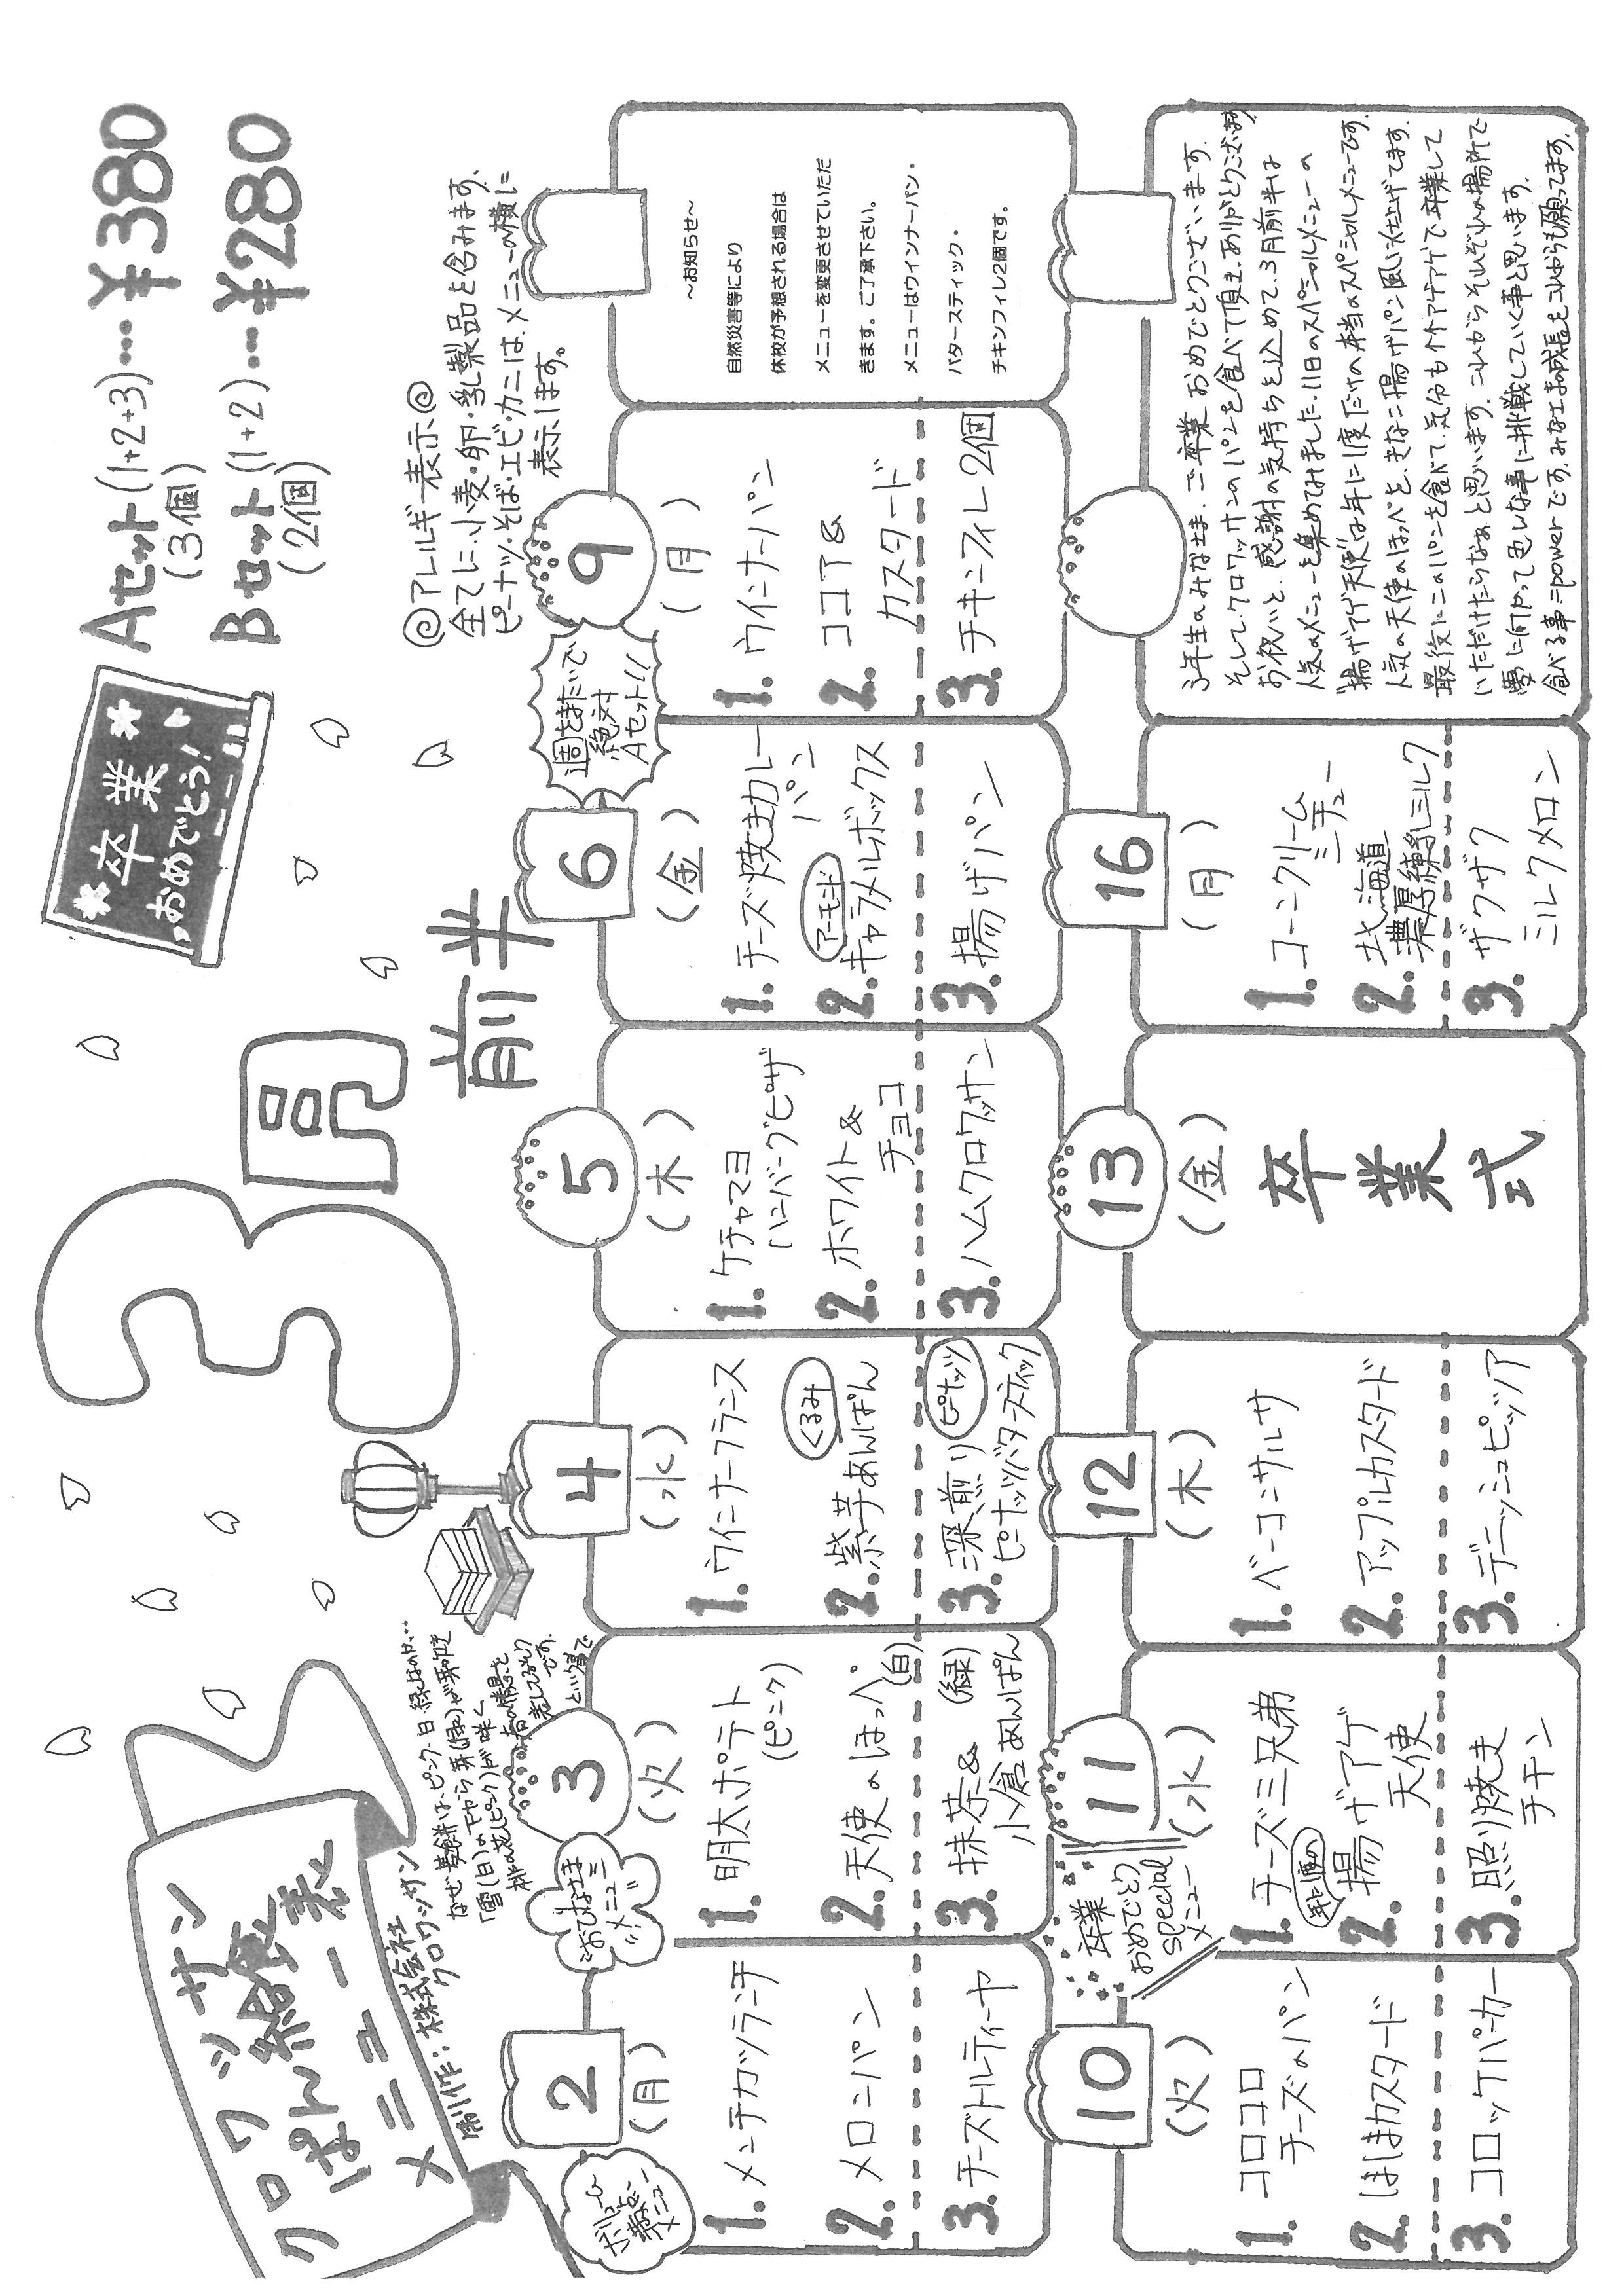 クロワッサン
ぱん給食
メニュー表
制作：株式会社
クロワッサン
3月
前半
卒業
おめでとう！
Aセット(1+2+3)…¥380
(3個)
Bセット(1+2)…¥280
(2個)
@アレルギー表示@
全てに、小麦・卵・乳製品を含みます。
ピーナッツ・そば・エビ・カニは、メニューの横に
表示します。
なぜ菱餅は、ピンク・白・緑なのか…
「雪(白)の下から芽(緑)が芽吹き
桃の花(ピンク)が咲く
2
(月)
1.メンチカツランチ
2.メロンパン
3.チーズトルティーヤ
おひなさま
メニュー
3
(火)
1.明太ポテト
(ピンク)
2.天使のほっぺ
(白)
3.抹茶& (緑)
小倉あんぱん
4
(水)
1.ウインナーフランス
くるみ
2.紫芋あんぱん
3.深煎り ピーナッツ
ピーナッツバタースティック
5
(木)
1.ケチャマヨ
ハンバーグピザ
2.ホワイト&
チョコ
3.ハムクロワッサン
6
(金)
1.チーズ焼きカレー
パン
アーモンド
2.キャラメルボックス
3.揚げパン
週をまたいで
絶対
Aセット!!
9
(月)
1.ウインナーパン
2.ココア&
カスタード
3.チキンフィレ2個
～お知らせ～
自然災害等により
休校が予想される場合は
メニューを変更させていただ
きます。ご了承下さい。
メニューはウインナーパン・
バタースティック・
チキンフィレ2個です。
10
(火)
1.コロコロ
チーズのパン
2.ほしほカスタード
3.コロッケバーカー
卒業
おめでとう
special
メニュー
11
(水)
1.チーズ三兄弟
年に1度の
2.揚げアゲ
天使
3.照り焼き
チキン
12
(木)
1.ベーコンサルサ
2.アップルカスタード
3.デニッシュピッツァ
13
(金)
卒業式
16
(月)
1.コーンクリーム
シチュー
2.北海道
濃厚練乳ミルク
3.ザクザク
ミルクメロン
3年生のみなさま、ご卒業おめでとうございます。
そして、クロワッサンのパンを食べて頂き、ありがとうございます。
お祝いと、感謝の気持ちを込めて、3月前半は
人気のメニューを集めてみました。11日のスペシャルメニューの
"揚げアゲ天使"は年に1度だけの本当のスペシャルメニューです。
人気の天使のほっぺを、きなこ揚げパン風に仕上げてます。
最後にこのパンを食べて、気分もアゲアゲで卒業して
いただけたらなぁと思います。これからそれぞれの場所で
夢に向かって色んな事に挑戦していく事と思います。
食べる事=powerです。みなさまの成長をこれからも願ってます。